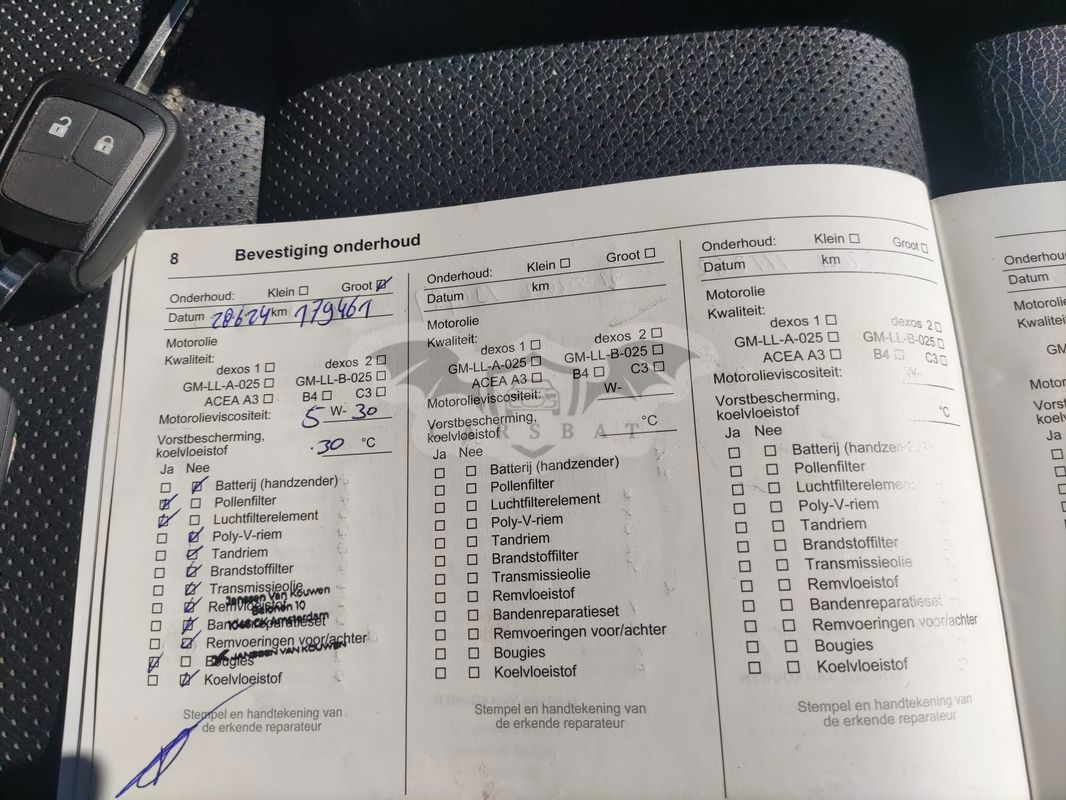 8 Bevestiging onderhoud
Onderhoud: Klein ☐ Groot ☑
Datum 28624 km 179461
Motorolie
Kwaliteit:
dexos 1 ☐ dexos 2 ☐
GM-LL-A-025 ☐ GM-LL-B-025 ☐
ACEA A3 ☐ B4 ☐ C3 ☐
Motorolieviscositeit: 5 W- 30
Vorstbescherming,
koelvloeistof -30 °C
Ja Nee
☐ ☑ Batterij (handzender)
☑ ☐ Pollenfilter
☑ ☐ Luchtfilterelement
☐ ☑ Poly-V-riem
☐ ☑ Tandriem
☐ ☑ Brandstoffilter
☐ ☑ Transmissieolie
☐ ☑ Remvloeistof
☐ ☑ Bandenreparatieset
☐ ☑ Remvoeringen voor/achter
☑ ☐ Bougies
☐ ☑ Koelvloeistof
Janssen Van Kouwen
Amsterdam
JANSSEN VAN KOUWEN
Stempel en handtekening van
de erkende reparateur
Onderhoud: Klein ☐ Groot ☐
Datum km
Motorolie
Kwaliteit:
dexos 1 ☐ dexos 2 ☐
GM-LL-A-025 ☐ GM-LL-B-025 ☐
ACEA A3 ☐ B4 ☐ C3 ☐
Motorolieviscositeit: W-
Vorstbescherming,
koelvloeistof °C
Ja Nee
☐ ☐ Batterij (handzender)
☐ ☐ Pollenfilter
☐ ☐ Luchtfilterelement
☐ ☐ Poly-V-riem
☐ ☐ Tandriem
☐ ☐ Brandstoffilter
☐ ☐ Transmissieolie
☐ ☐ Remvloeistof
☐ ☐ Bandenreparatieset
☐ ☐ Remvoeringen voor/achter
☐ ☐ Bougies
☐ ☐ Koelvloeistof
Stempel en handtekening van
de erkende reparateur
Onderhoud: Klein ☐ Groot ☐
Datum km
Motorolie
Kwaliteit:
dexos 1 ☐ dexos 2 ☐
GM-LL-A-025 ☐ GM-LL-B-025 ☐
ACEA A3 ☐ B4 ☐ C3 ☐
Motorolieviscositeit: W-
Vorstbescherming,
koelvloeistof °C
Ja Nee
☐ ☐ Batterij (handzender)
☐ ☐ Pollenfilter
☐ ☐ Luchtfilterelement
☐ ☐ Poly-V-riem
☐ ☐ Tandriem
☐ ☐ Brandstoffilter
☐ ☐ Transmissieolie
☐ ☐ Remvloeistof
☐ ☐ Bandenreparatieset
☐ ☐ Remvoeringen voor/achter
☐ ☐ Bougies
☐ ☐ Koelvloeistof
Stempel en handtekening van
de erkende reparateur
Datum
Ja